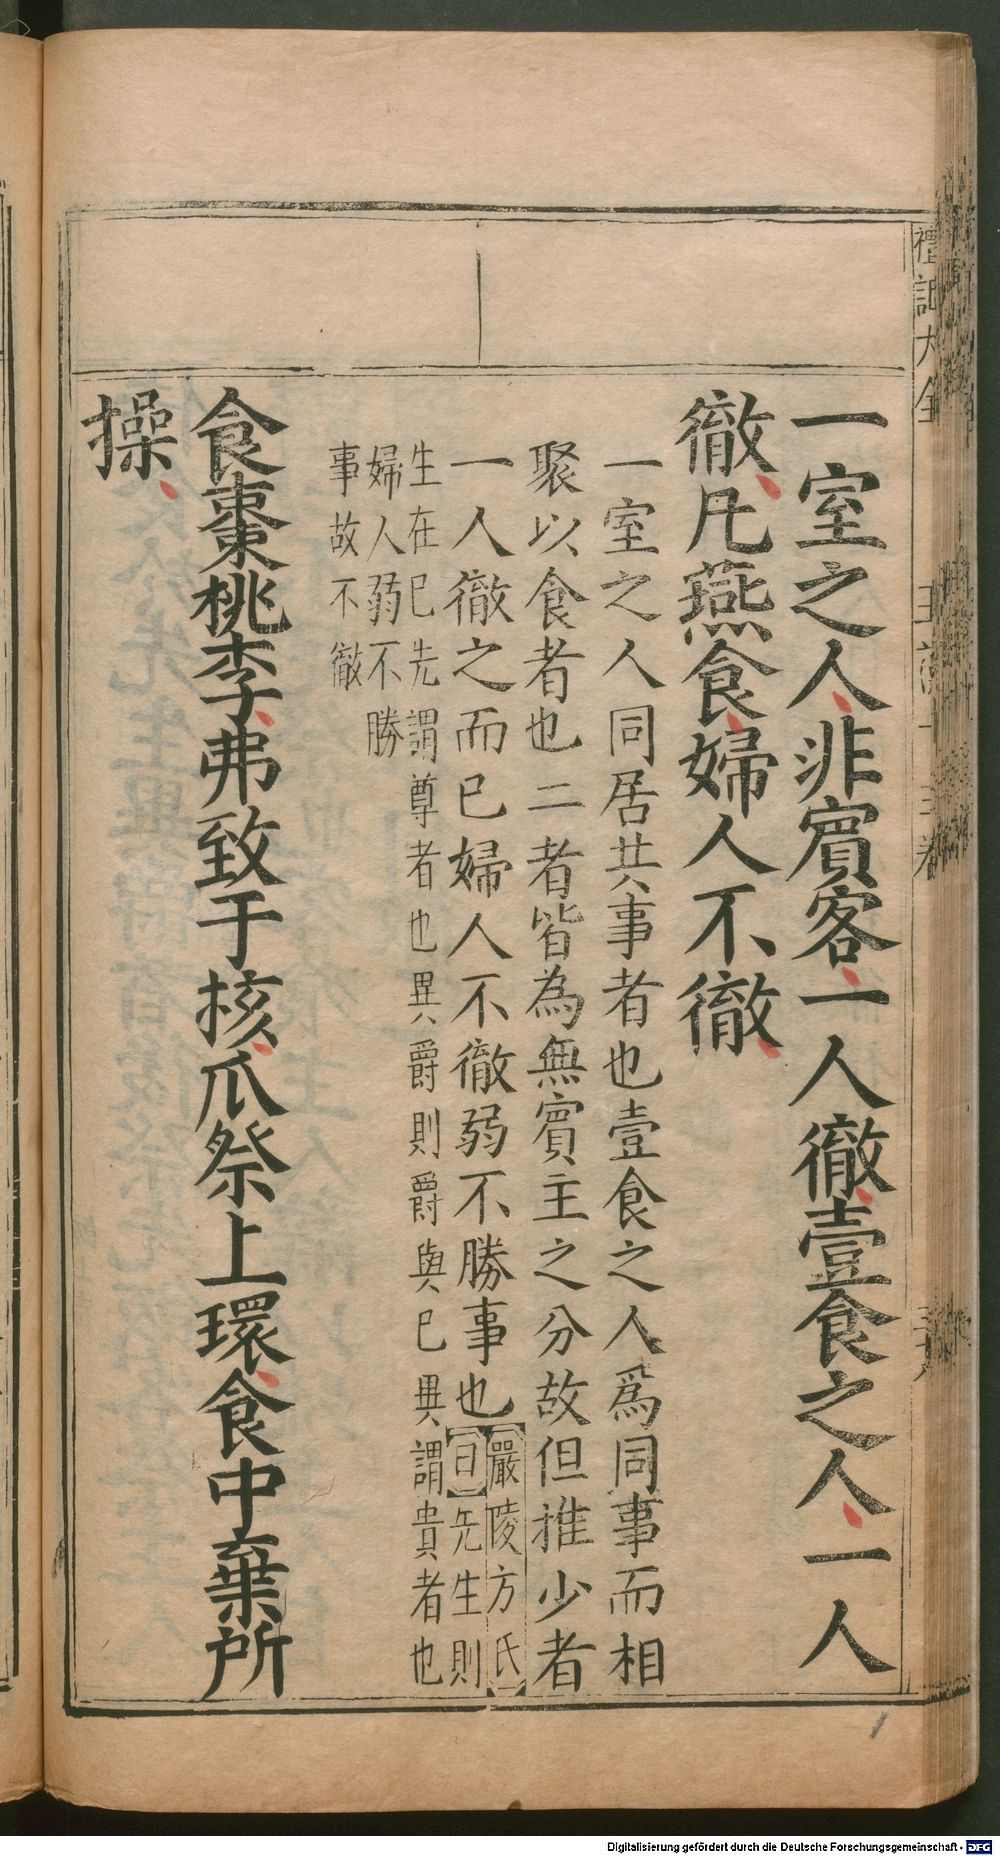 禮記大全
一室之人非賓客一人徹壹食之人一人
徹凡燕食婦人不徹
一室之人同居共事者也壹食之人爲同事而相
聚以食者也二者皆為無賓主之分故但推少者
一人徹之而已婦人不徹弱不勝事也嚴陵方氏
曰先生則
生在已先謂尊者也異爵則爵與已異謂貴者也
婦人弱不勝
事故不徹
食棗桃李弗致于核瓜祭上環食中棄所
操
Digitalisierung gefördert durch die Deutsche Forschungsgemeinschaft - DFG